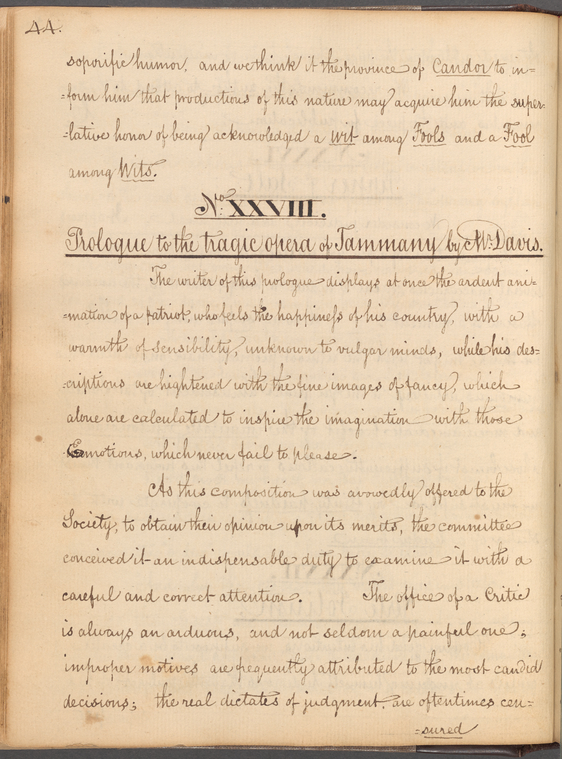 44.
soporific humor. and we think it the province of Candor to in=
=form him that productions of this nature may acquire him the super=
=lative honor of being acknowledged a wit among Fools and a Fool
among Wits.
No. XXVIII.
Prologue to the tragic opera of Tammany by Mr. Davis.
The writer of this prologue displays at once the ardent ani=
=mation of a patriot, who feels the happiness of his country, with a
warmth of sensibility, unknown to vulgar minds, while his des=
=criptions are hightened with the fine images of fancy, which
alone are calculated to inspire the imagination with those
Emotions, which never fail to please.
As this composition was avowedly offered to the
Society, to obtain their opinion upon its merits, the committee
conceived it an indispensable duty to examine it with a
careful and correct attention. The office of a Critic
is always an arduous, and not seldom a painful one;
improper motives are frequently attributed to the most candid
decisions; the real dictates of judgment. are oftentimes cen=
=sured